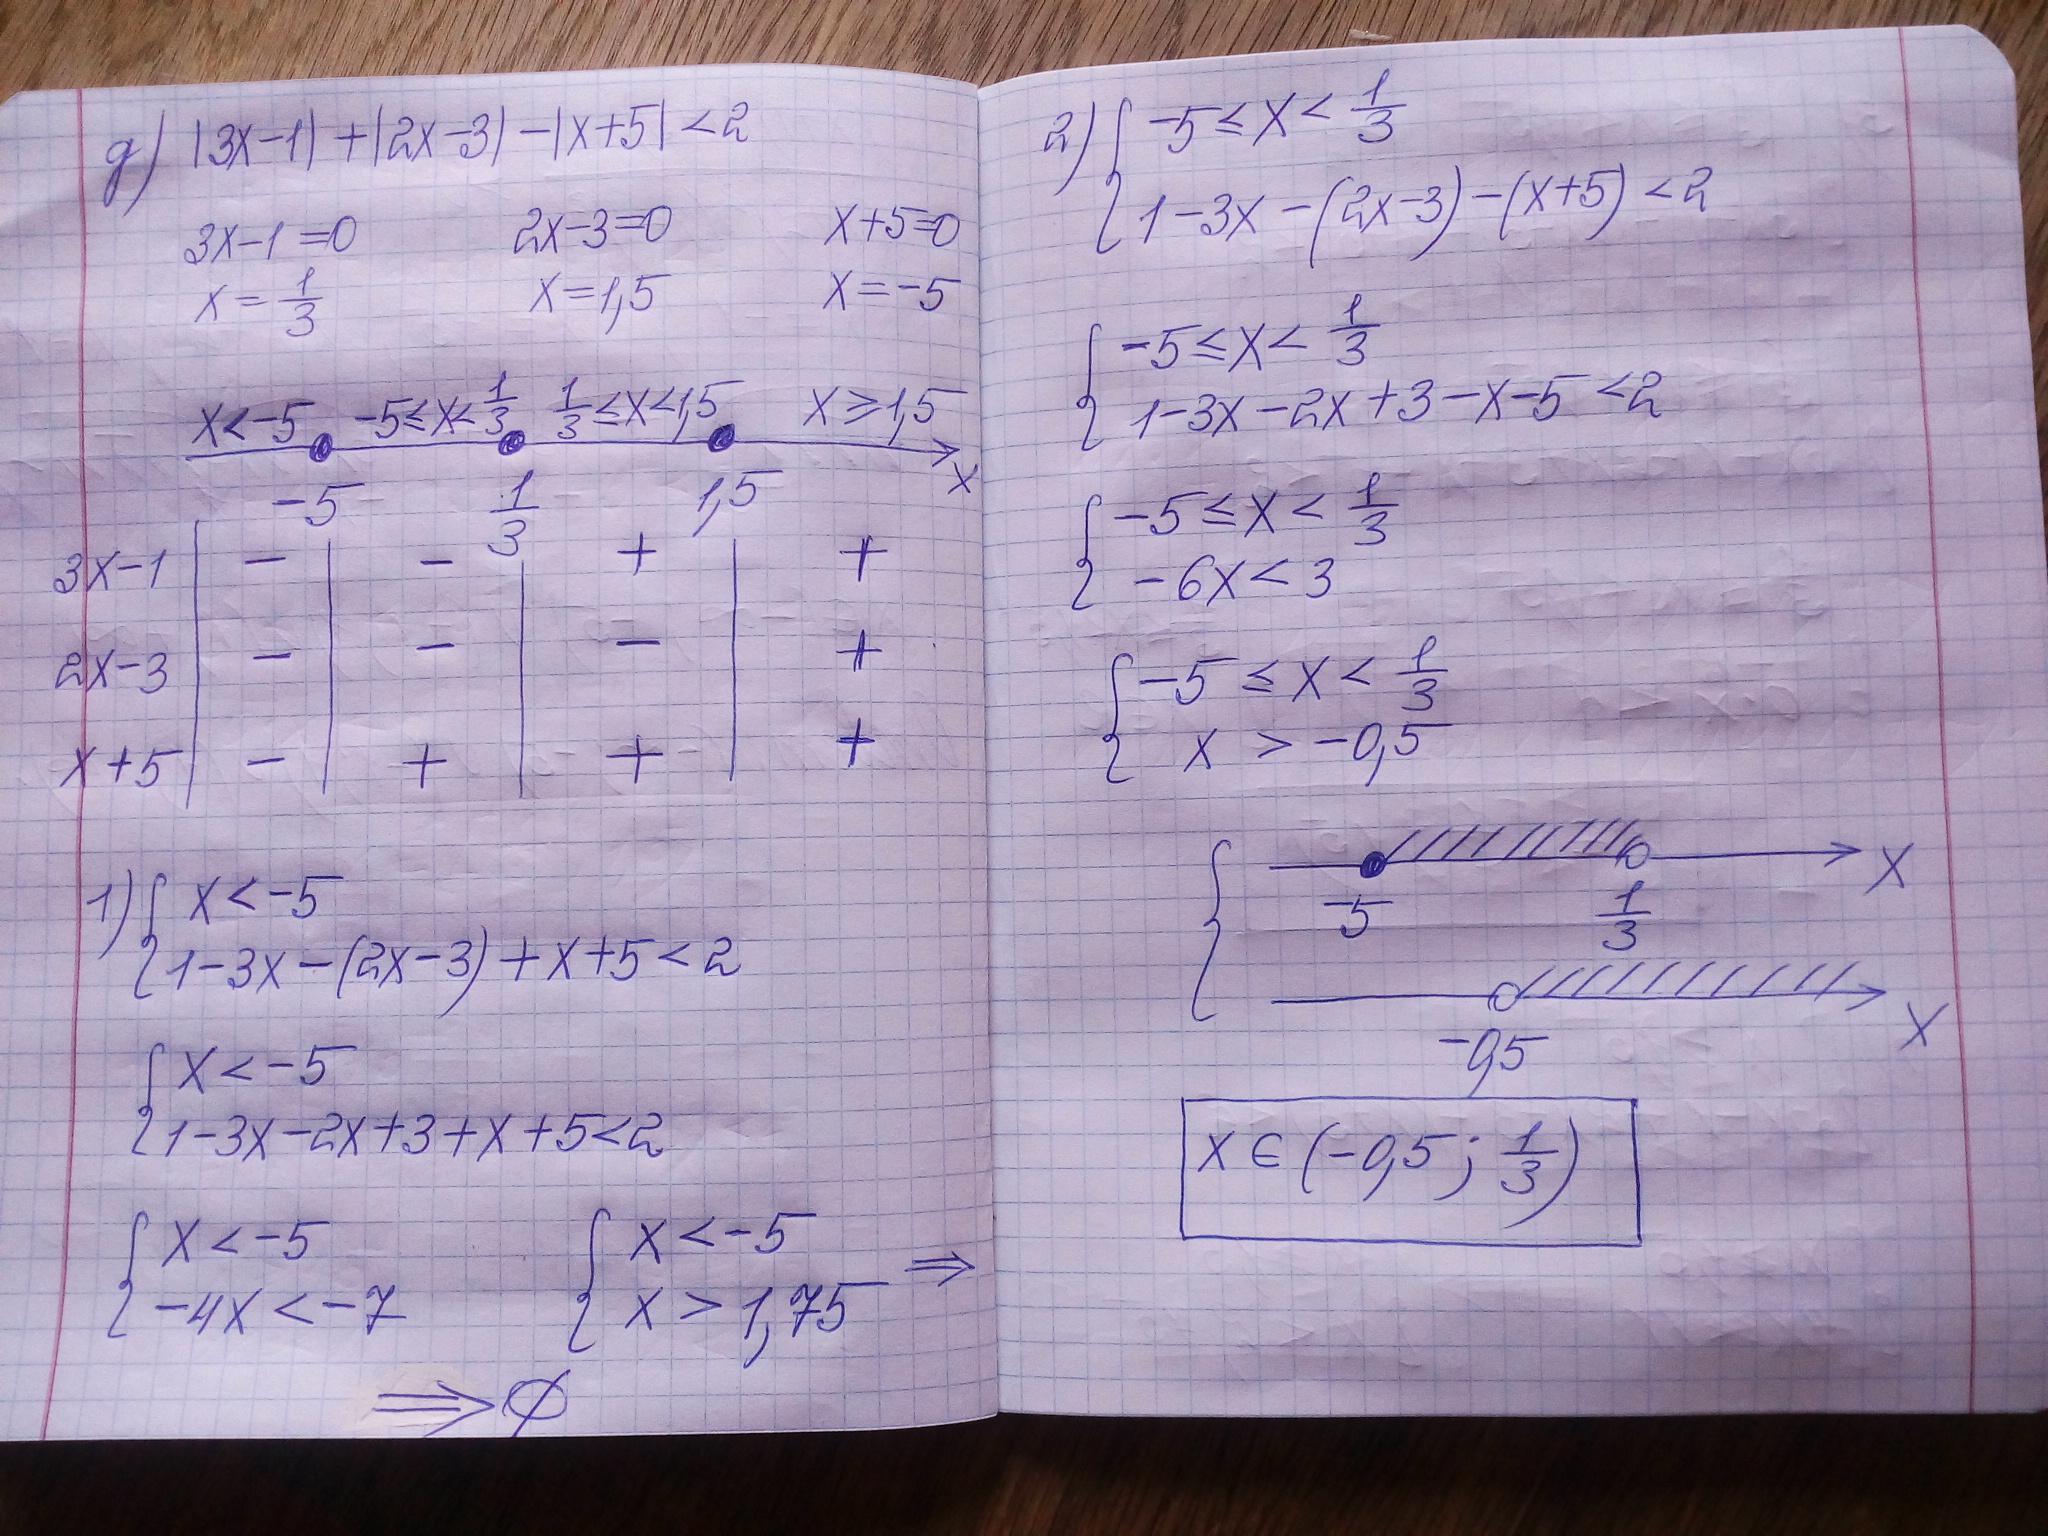 g) |3x-1| + |2x-3| - |x+5| < 2
3x-1=0 2x-3=0 x+5=0
x = 1/3 x=1,5 x=-5
x<-5 -5≤x<1/3 1/3≤x<1,5 x≥1,5
-5 1/3 1,5 x
3x-1 - - + +
2x-3 - - - +
x+5 - + + +
1) { x<-5
1-3x-(2x-3)+x+5<2
{ x<-5
1-3x-2x+3+x+5<2
{ x<-5 { x<-5 ⇒
-4x<-7 x>1,75
⇒ ∅
2) { -5≤x<1/3
1-3x-(2x-3)-(x+5)<2
{ -5≤x<1/3
1-3x-2x+3-x-5<2
{ -5≤x<1/3
-6x<3
{ -5≤x<1/3
x>-0,5
{ x
-5 1/3
x
-0,5
x∈(-0,5; 1/3)